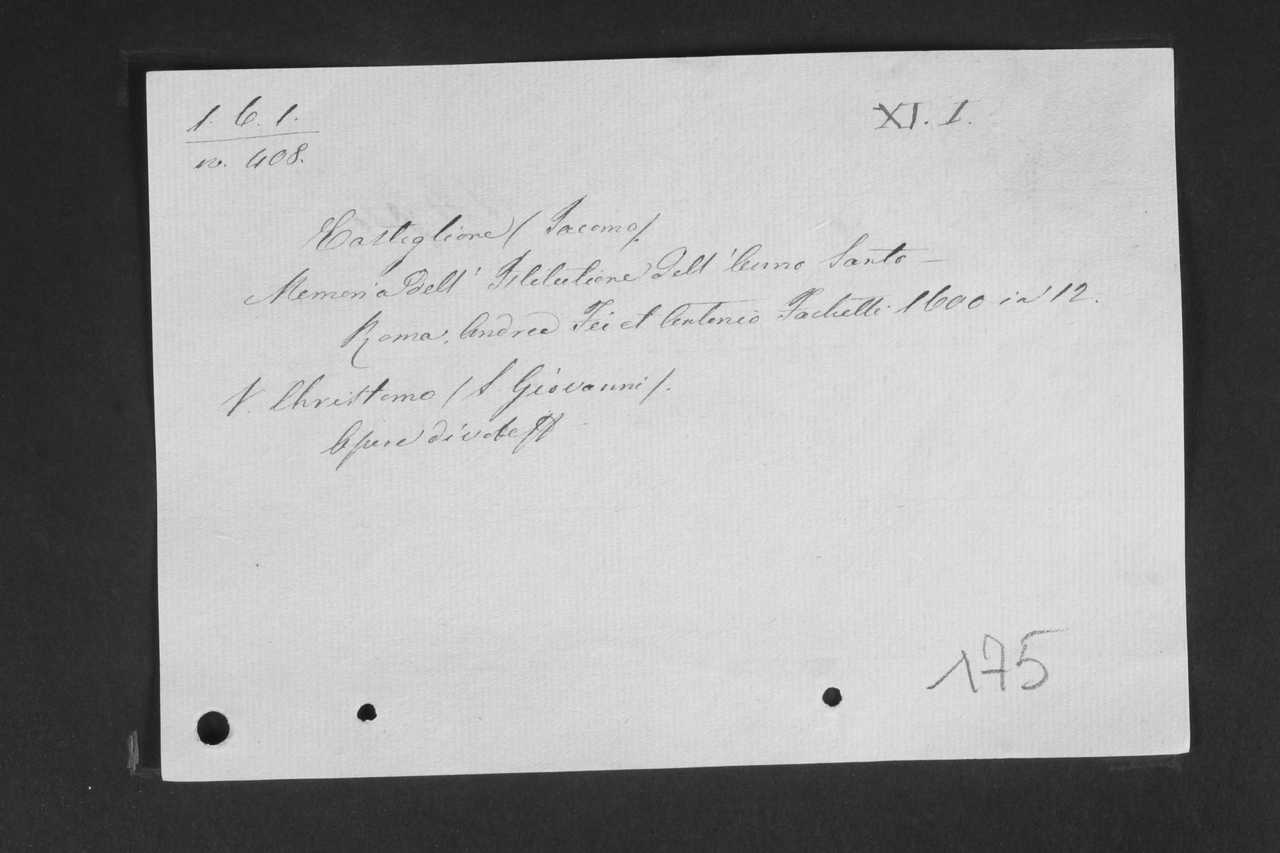 1. 6. 1.
XI. 1.
n. 408.
Castiglione (Jacomo).
Memoria dell' Istitutione dell' Anno Santo —
Roma, Andrea Fei et Antonio Pachetti 1600 in 12.
V. Christomo (S. Giovanni).
Opere divote
175